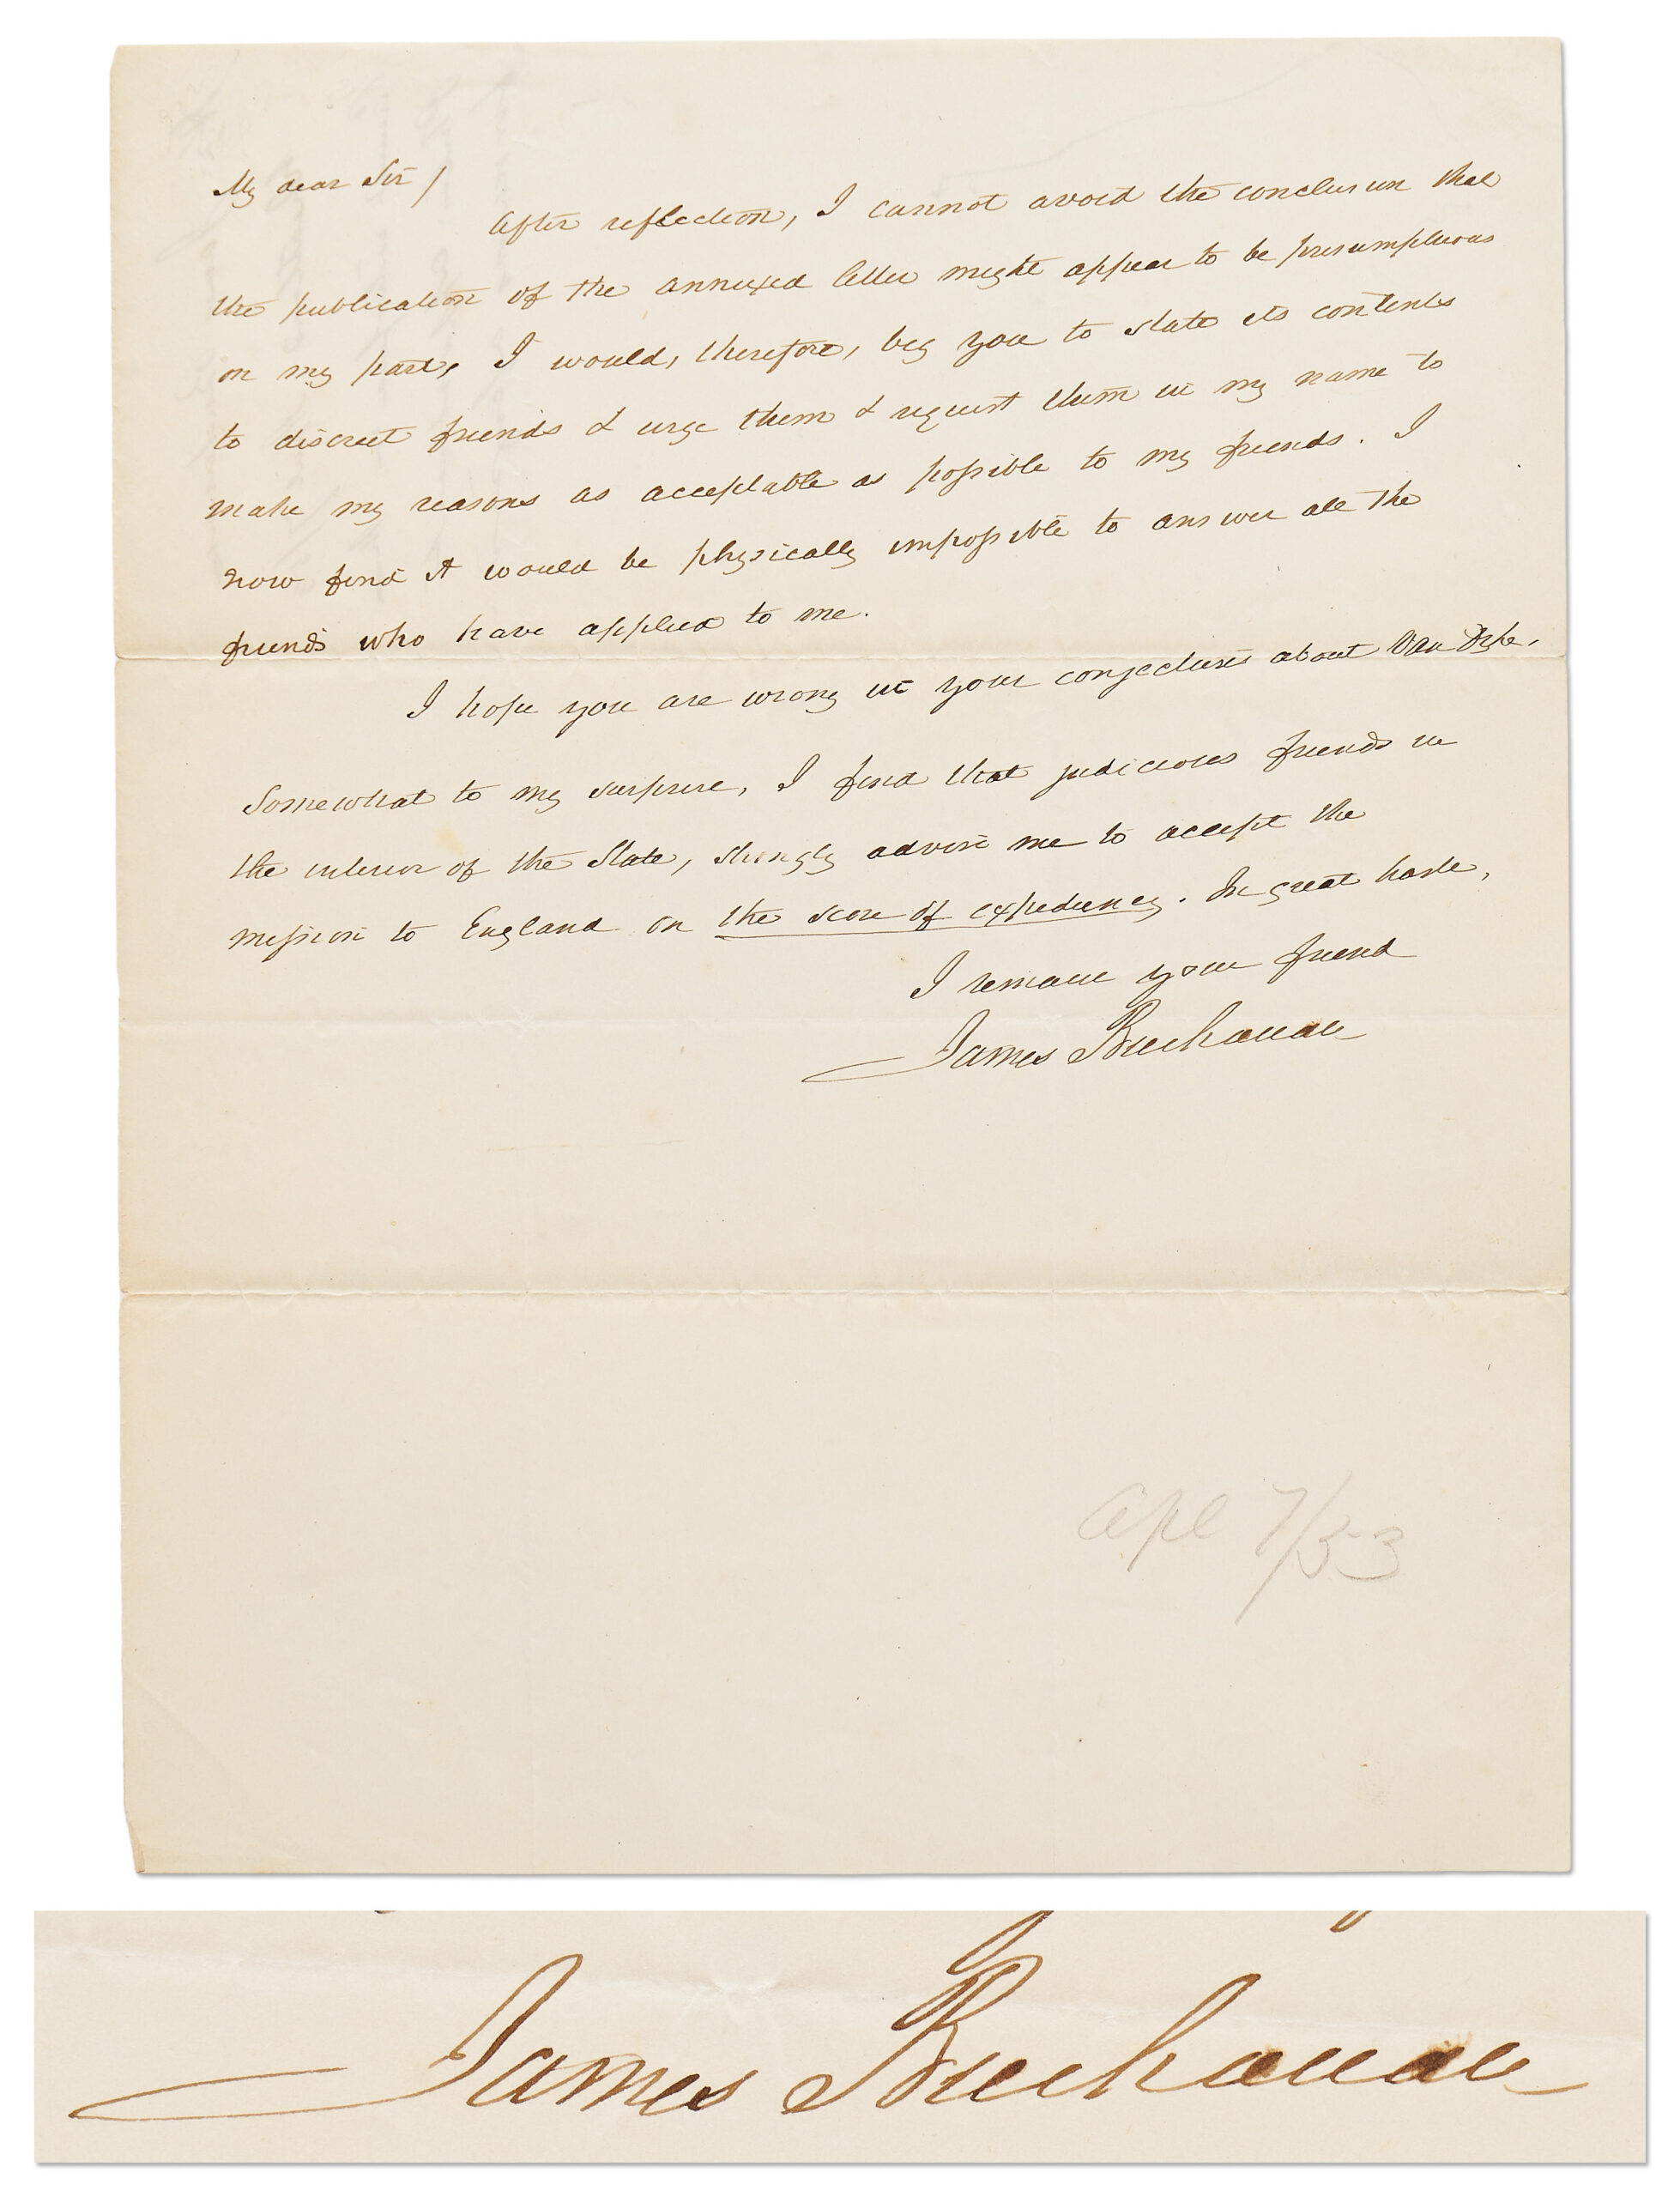 My dear Sir /
After reflection, I cannot avoid the conclusion that
the publication of the annexed letter might appear to be presumptuous
on my part, I would, therefore, beg you to state its contents
to discreet friends & urge them & request them in my name to
make my reasons as acceptable as possible to my friends. I
now find it would be physically impossible to answer all the
friends who have applied to me.
I hope you are wrong in your conjectures about Van Dyke.
Somewhat to my surprise, I find that judicious friends in
the interior of the State, strongly advise me to accept the
mission to England on the score of expediency. In great haste,
I remain your friend
James Buchanan
Apl 7/53
James Buchanan